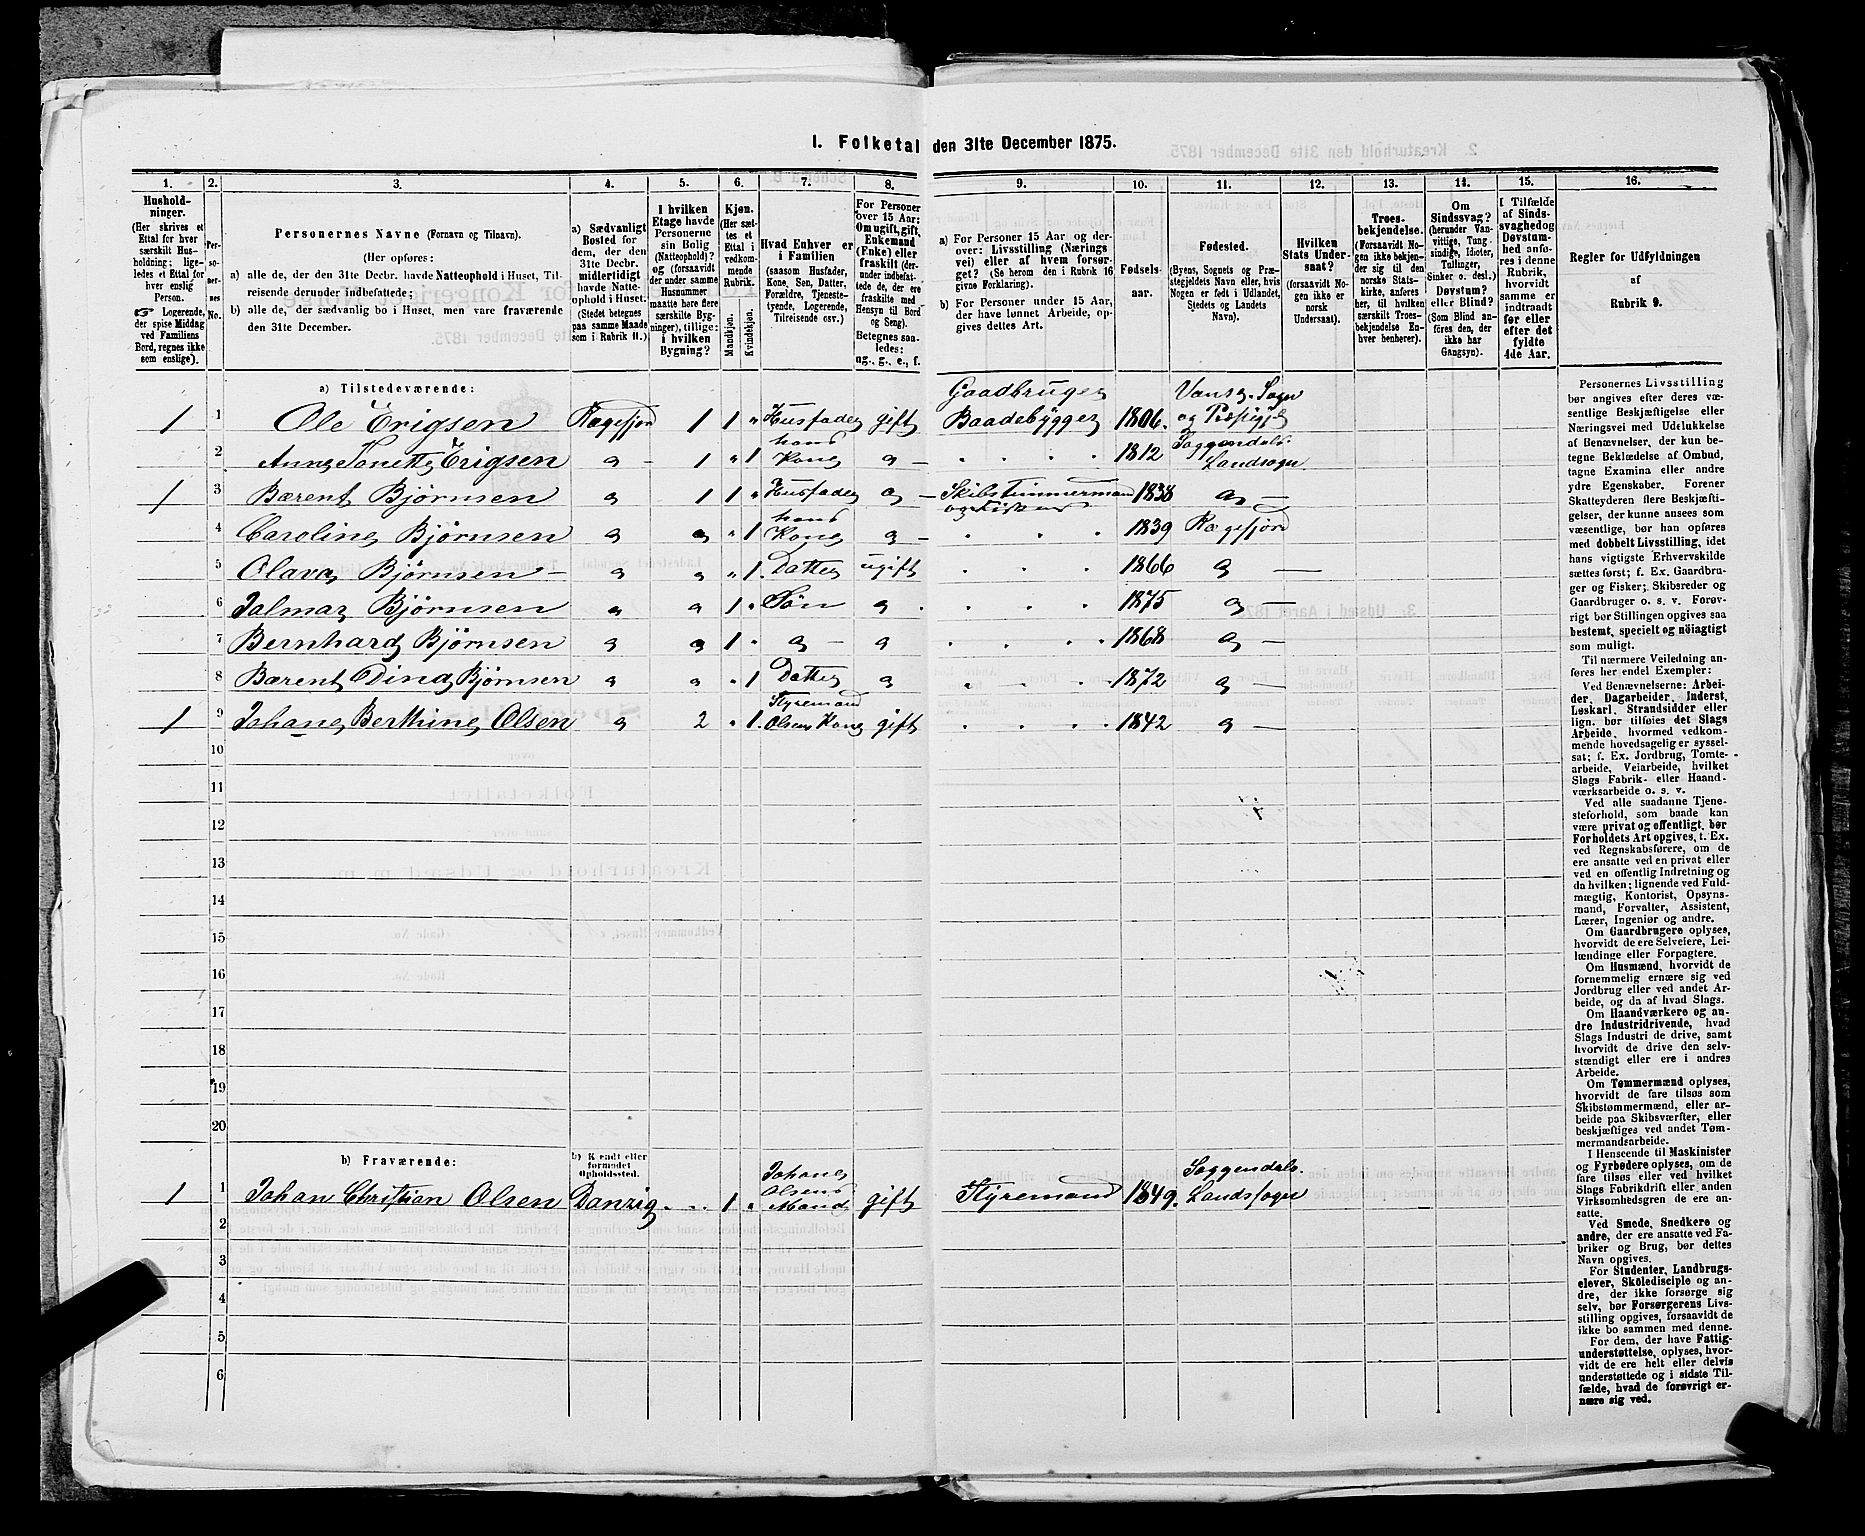 1. Folketal den 31te December 1875.
1. 2. 3. 4. 5. 6. 7. 8. 9. 10. 11. 12. 13. 14. 15. 16.
Hushold-
ninger.
(Her skrives et
Ettal for hver
særskilt Hus-
holdning; lige-
ledes et Ettal for
hver enslig
Person.
☞ Logerende,
der spise Middag
ved Familiens
Bord, regnes ikke
som enslige).
Per-
so-
ner-
nes
No.
Personernes Navne (Fornavn og Tilnavn).
(Her opføres:
a) alle de, der den 31te Decbr. havde Natteophold i Huset, Til-
reisende derunder indbefattede;
b) alle de, der sædvanlig bo i Huset, men vare fraværende
den 31te December.
a) Sædvanligt
Bosted for
dem, der den
31te Decbr.
midlertidigt
havde Natte-
ophold i Huset.
(Stedet betegnes
paa samme Maade
som i Rubrik 11.)
I hvilken
Etage havde
Personerne
sin Bolig
(Natteophold)?
og (forsaavidt
under samme
Husnummer
maatte høre flere
særskilte Byg-
ninger), tillige:
i hvilken
Bygning?
Kjøn.
(Her sæt-
tes et
Ettal i
vedkom-
mende
Rubrik.
Mandkjøn.
Kvindekjøn.
Hvad Enhver er
i Familien
(saasom Husfader,
Kone, Søn, Datter,
Forældre, Tjeneste-
tyende, Logerende,
Tilreisende osv.)
For Personer
over 15 Aar:
Om ugift, gift,
Enkemand
(Enke) eller
fraskilt (der-
under indbefat-
tede de, der ere
fraskilte med
Hensyn til Bord
og Seng).
Betegnes saa-
ledes:
ug., g., e., f.
a) For Personer 15 Aar og der-
over: Livsstilling (Nærings-
vei) eller af hvem forsør-
get? (Se herom den i Rubrik 16
givne Forklaring).
b) For Personer under 15 Aar,
der have lønnet Arbeide, op-
gives dettes Art.
Fødsels-
aar.
Fødested.
(Byens, Sognets og Præ-
stegjeldets Navn eller, hvis
Nogen er født i Udlandet,
Stedets og Landets
Navn).
Hvilken
Stats Under-
saat?
(forsaavidt No-
gen ikke er
norsk
Undersaat).
Troes-
bekjendelse.
(Forsaavidt No-
gen ikke bekjen-
der sig til den
norske Stats-
kirke, anføres
her, til hvilken
særskilt Troes-
bekjendelse En-
hver henhører).
Om
Sindssvag?
(herunder Van-
vittige, Tung-
sindige, Idioter,
Tullinger,
Sinker o. desl.)
Døvstum?
eller Blind?
(Som Blind an-
føres den, der
ikke har
Gangsyn).
I Tilfælde
af Sinds-
svaghed og
Døvstum-
hed anfø-
res i denne
Rubrik,
hvorvidt
samme er
indtraadt
før eller
efter det
fyldte
4de Aar.
Regler for Udfyldningen
af
Rubrik 9.
a) Tilstedeværende:
Gaadbruger Vanse Sogn
1 1 Ole Erigsen Rægefjord 1 1 „ Husfader gift Baadebygger 1806. og Præstgjel
hans Soggendals
2 Anne Tonette Erigsen 1 „ 1 Kone 1812 Landsogn
1 3 Bærent Bjørnsen 1 1 „ Husfader Skibstimmermand 1838
hans
4 Caroline Bjørnsen „ 1 Kone 1839 Rægefjord
5 Olava Bjørnsen „ 1. Datter ugift 1866
6 Jalmar Bjørnsen 1 Søn 1875
7 Bernhard Bjørnsen 1 1868
8 Bærent Dina Bjørnsen 1 Datter 1872
Styremand
1 9 Johane Berthine Olsen 2 „ 1. Olsens Kone gift 1842
10
11
12
13
14
15
16
17
18
19
20
b) Fraværende:
b) Kjendt eller
formodet
Opholdssted.
Johane Soggendals
Olsens
1 1 Johan Christian Olsen Danzig 1 „ Mand gift Styremand 1849. Landssogn
2
3
4
5
6
Personernes Livsstilling
bør angives efter deres væ-
sentlige Beskjæftigelse eller
Næringsvei med Udelukkelse
af Benævnelser, der kun be-
tegne Beklædelse af Ombud,
tagne Examina eller andre
ydre Egenskaber. Forener
Skatteyderen flere Beskjæfti-
gelser, der kunne ansees som
væsentlige, bør han opføres
med dobbelt Livsstilling, idet
hans vigtigste Erhvervskilde
sættes først; f. Ex. Gaardbru-
ger og Fisker; Skibsreder og
Gaardbruger o. s. v. Forøv-
rigt bør Stillingen opgives saa
bestemt, specielt og nøiagtigt
som muligt.
Til nærmere Veiledning an-
føres her endel Exempler:
Ved Benævnelserne: Arbei-
der, Dagarbeider, Inderst,
Løskarl, Strandsidder eller
lign. bør tilføies det Slags
Arbeide, hvormed vedkom-
mende hovedsagelig er syssel-
sat; f. Ex. Jordbrug, Tomte-
arbeide, Veiarbeide, hvilket
Slags Fabrik- eller Haand-
værksarbeide o. s. v.
Ved alle saadanne Tjene-
steforhold, som baade kan
være privat og offentligt, bør
Forholdets Art opgives, t. Ex.
ved Regnskabsførere, om de
ere ansatte ved en privat eller
ved en offentlig Indretning og
da hvilken; lignende ved Fuld-
mægtig, Kontorist, Opsyns-
mand, Forvalter, Assistent,
Lærer, Ingeniør og andre.
Om Gaardbrugere oplyses,
hvorvidt de ere Selveiere, Lei-
lændinge eller Forpagtere.
Om Husmænd, hvorvidt de
fornemmelig ernære sig ved
Jordbrug eller ved andet Ar-
beide, og da af hvad Slags.
Om Haandværkere og an-
dre Industridrivende, hvad
Slags Industri de drive, samt
hvorvidt de drive den selv-
stændigt eller ere i andres
Arbeide.
Om Tømmermænd oplyses,
hvorvidt de fare tilsøs som
Skibstømmermænd, eller ar-
beide paa Skibsværfter, eller
beskjæftiges ved andet Tøm-
mermandsarbeide.
I Henseende til Maskinister
og Fyrbødere oplyses, om de
fare tilsøs eller ved hvilket
Slags Fabrikdrift eller anden
Virksomhed de ere an-
satte.
Ved Smede, Snedkere og
andre, der ere ansatte ved Fa-
briker og Brug, bør dettes
Navn opgives.
For Studenter, Landbrugs-
elever, Skoledisciple og an-
dre, der ikke forsørge sig
selv, bør Forsørgerens Livs-
stilling opgives, forsaavidt de
ikke bo sammen med denne.
For dem, der have Fattig-
understøttelse, oplyses, hvor-
vidt de ere helt eller delvis
understøttede og i sidste Til-
fælde, hvad de forøvrigt er-
nære sig ved.